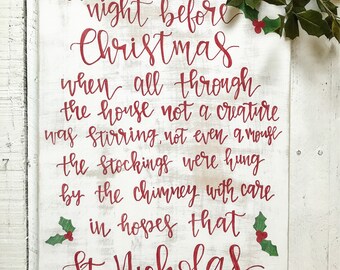 night before
Christmas
when all through
the house not a creature
was stirring, not even a mouse
the stockings were hung
by the chimney with care
in hopes that
St Nicholas